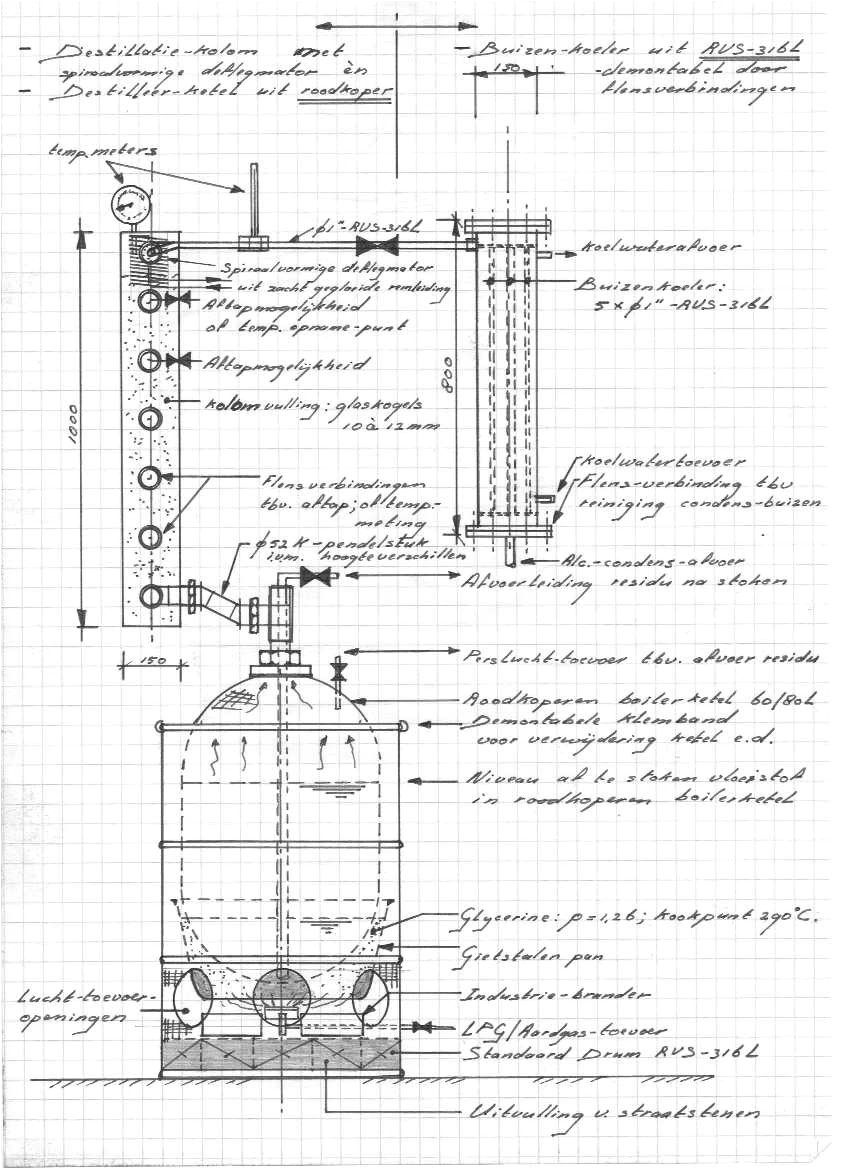 - Destillatie-kolom met
spiraalvormige deflegmator èn
- Destilleer-ketel uit roodkoper
- Buizen-koeler uit RVS-316L
-demontabel door
flensverbindingen
150
temp. meters
φ1"-RVS-316L
Koelwaterafvoer
Spiraalvormige deflegmator
uit zacht gegloeide remleiding
Aftapmogelijkheid
of temp. opname-punt
Buizenkoeler:
5 x φ1"-RVS-316L
Aftapmogelijkheid
800
kolomvulling: glaskogels
10 à 12mm
1000
Koelwatertoevoer
Flens-verbinding tbv
reiniging condens-buizen
Flensverbindingen
tbv. aftap; of temp.-
meting
φ52 K-pendelstuk
i.v.m. hoogteverschillen
Alc.-condens-afvoer
Afvoerleiding residu na stoken
150
Perslucht-toevoer tbv. afvoer residu
Roodkoperen boilerketel 60/80L
Demontabele klemband
voor verwijdering ketel e.d.
Niveau af te stoken vloeistof
in roodkoperen boilerketel
Glycerine: ρ=1,26; kookpunt 290°C.
Gietstalen pan
Lucht-toevoer-
openingen
Industrie-brander
LPG/Aardgas-toevoer
Standaard Drum RVS-316L
Uitvulling v. straatstenen